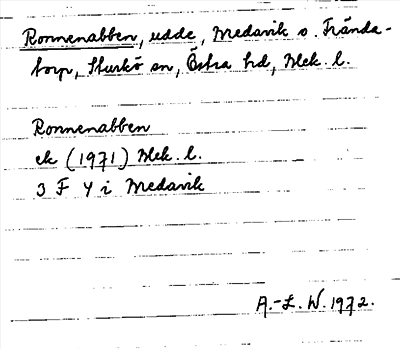 Ronnenabben, udde, Medavik s. Frända-
torp, Sturkö sn, Östra hd, Blek. l.
Ronnenabben
ek (1971) Blek. l.
3 F Y i Medavik
A.-L. W. 1972.